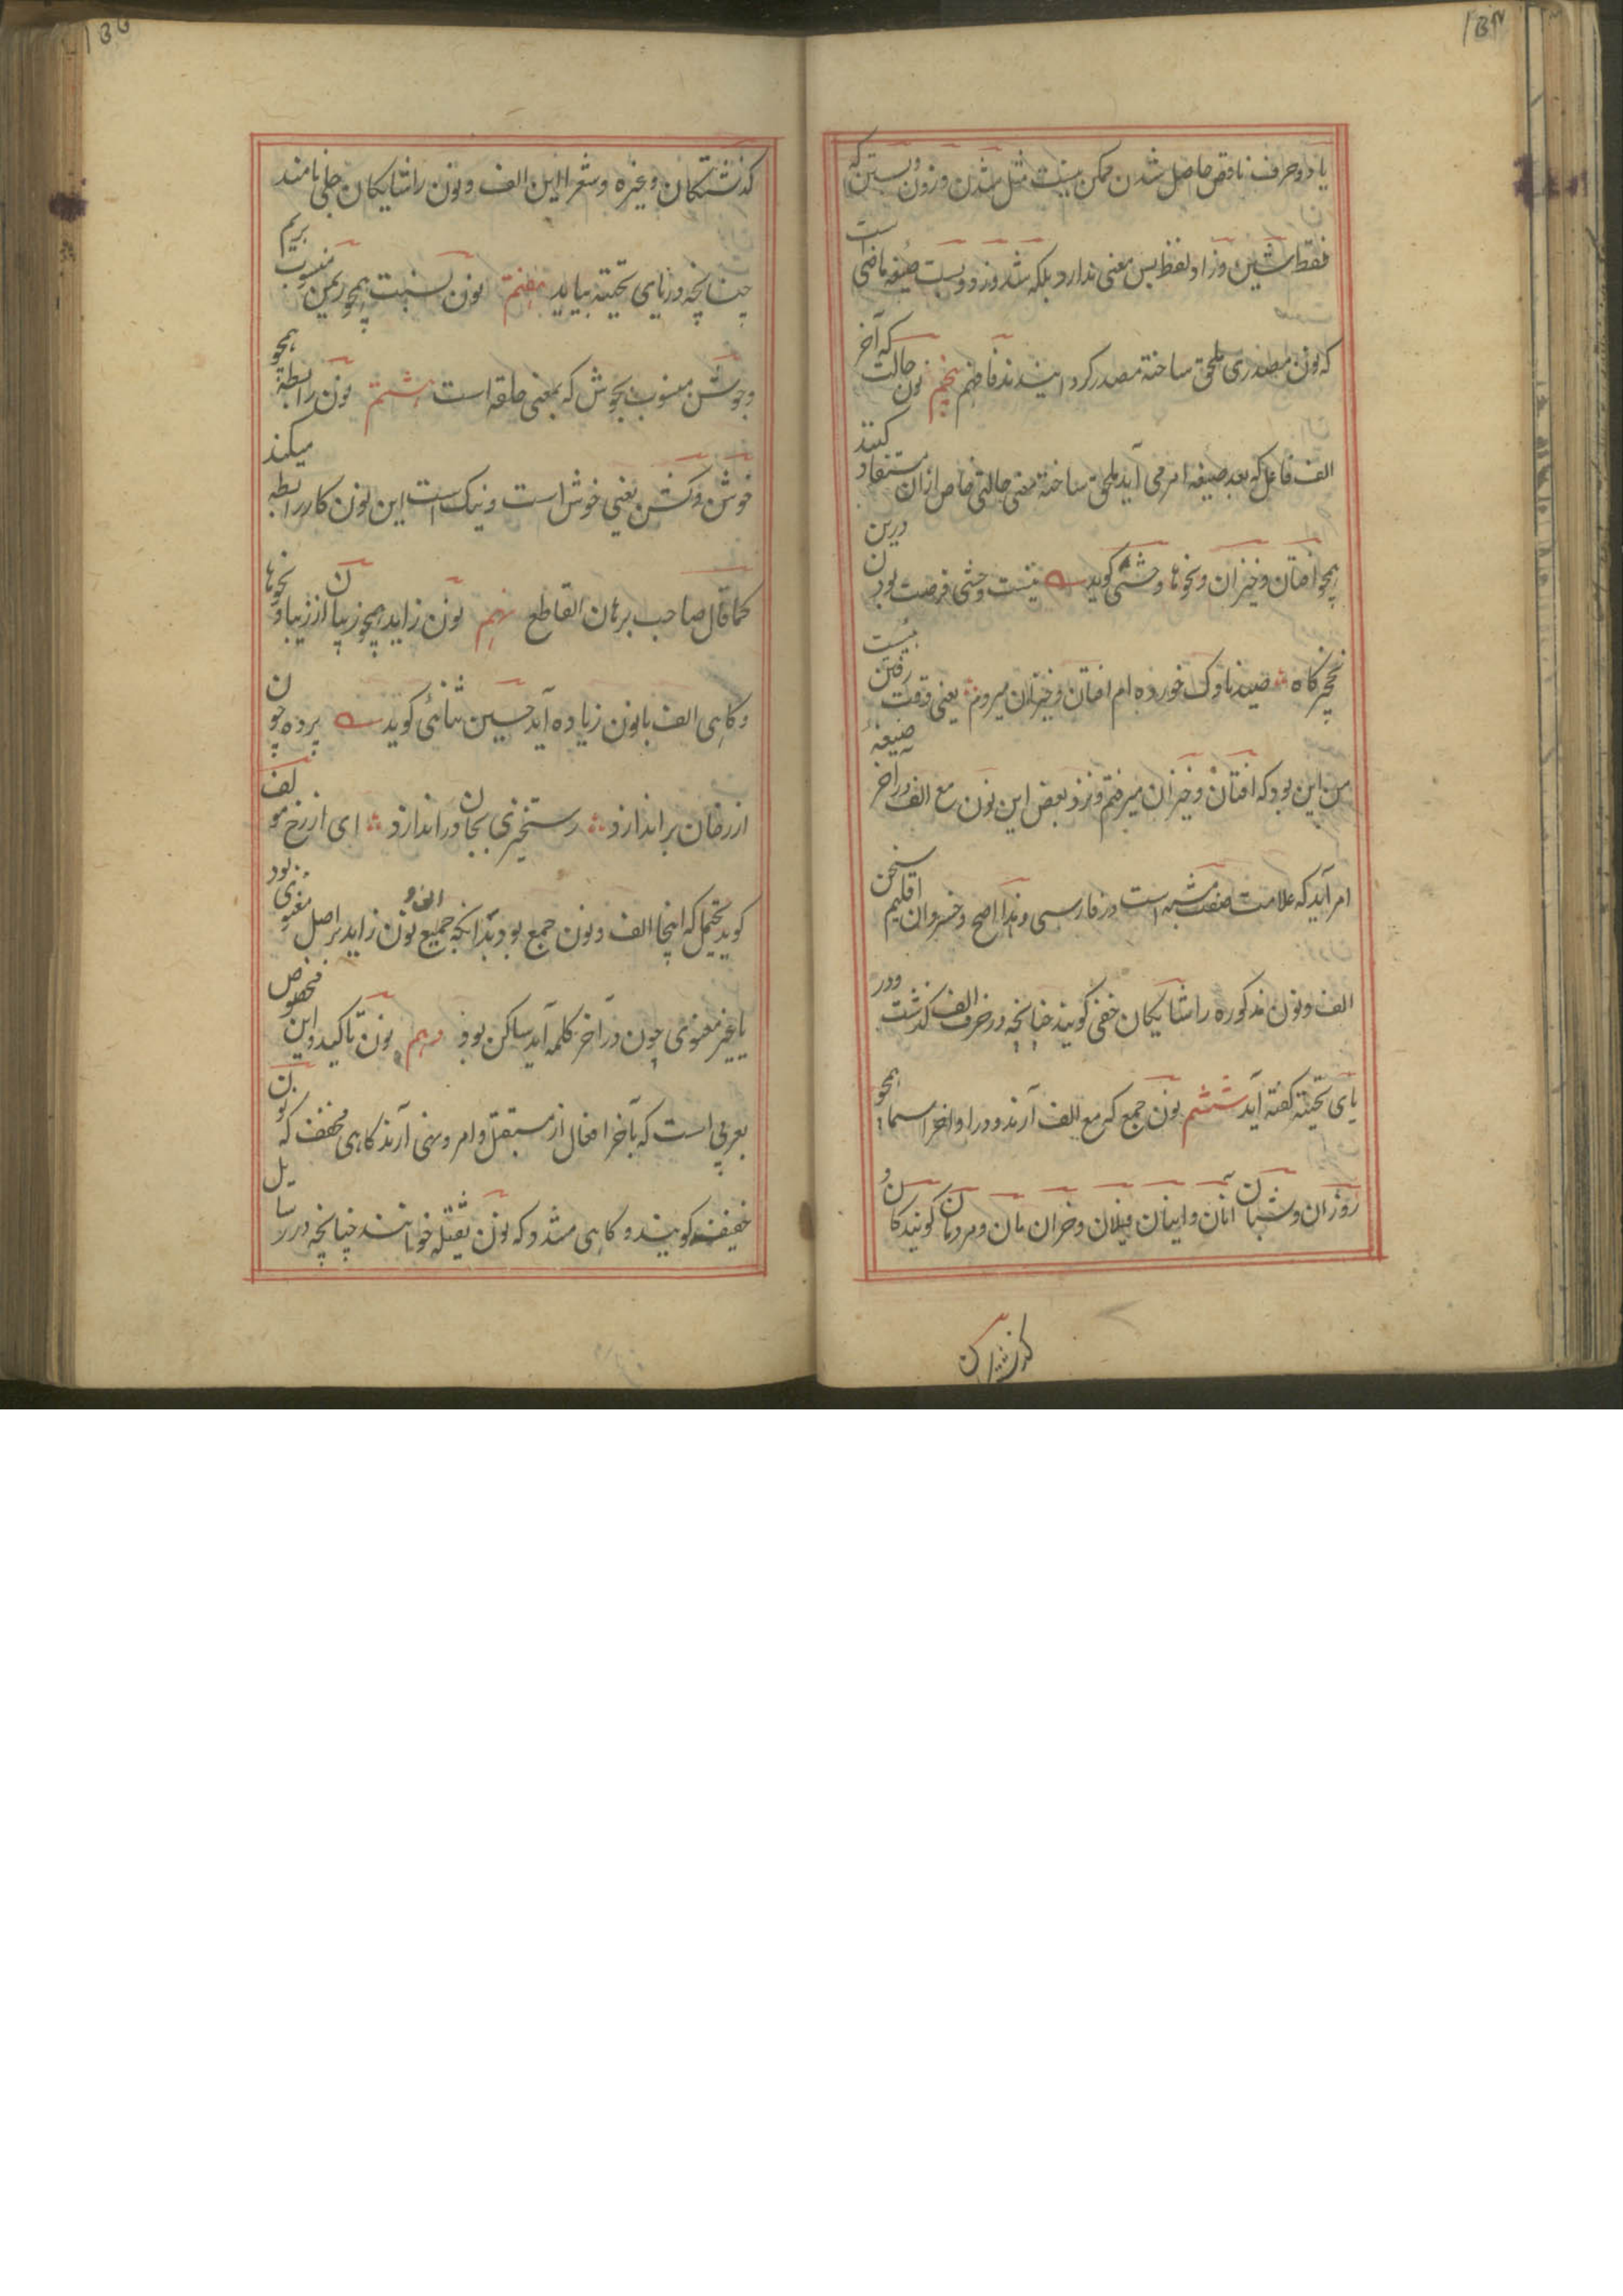 ۱۵۴
یا دو حرف ناقص حاصل شدن ممکن نیست مثل شدن و زدن و بستن که
فقط شین و زا و لفظ بس معنی ندارد بلکه شد و زد و بست صیغه ماضی است
که نون مصدری ملحق ساخته مصدر کرد انیدند فافهم پنجم نون حالت که آخر
الف فاعل که بعد صیغه امر می آید ملحق ساخته معنی حالتی خاص ازان مستفاد کنند
همچو افتان و خیزان و نحوها وحشی گوید نیست وحشی فرصت بودن درین
نخچیر گاه صید ناوک خورده ام افتان و خیزان میروم یعنی وقت رفتن
من این بود که افتان و خیزان میرفتم و نزد بعض این نون مع الف در آخر صیغهٔ
امر آید که علامت صفت مشبه است در فارسی و هذا اصح و خسروان اقلیم سخن
الف و نون مذکوره را شایگان خفی گویند چنانچه در حرف الف گذشت و در
یای تحتیه گفته آید ششم نون جمع که مع الف آرند و در اواخر اسما همچو
روزان و شبان آنان و اینان فیلان و خران مان و مردمان گویندگان و
گذشتگان
۱۵۵
گذشتگان و غیره و شعرا این الف و نون را شایگان جلی نامند
چنانچه در یای تحتیه بیاید هفتم نون نسبت همچو ریمن منسوب بریم
و جوشن منسوب بجوش که بمعنی حلقه است هشتم نون رابطه همچو
خوشن و نکشن یعنی خوش است و نیک است این نون کار رابطه میکند
کما قال صاحب برهان القاطع نهم نون زاید همچو زیبان از زیبا و نحوها
و گاهی الف با نون زیاده آید حسین ثنائی گوید پرده چون
از رخان براندازد رستخیزی بجان دراندازد ای از رخ مولف
گوید یحتمل که اینجا الف و نون جمع بود بدانکه جمیع الف و نون زاید بر اصل معنوی بود
یا غیر معنوی چون در آخر کلمه آید ساکن بود دهم نون تاکید و این مخصوص
بعربی است که بآخر افعال از مستقبل و امر و نهی آرند گاهی مخفف که نون
خفیفه گویند و گاهی مشدد که نون ثقیله خوانند چنانچه در رسایل